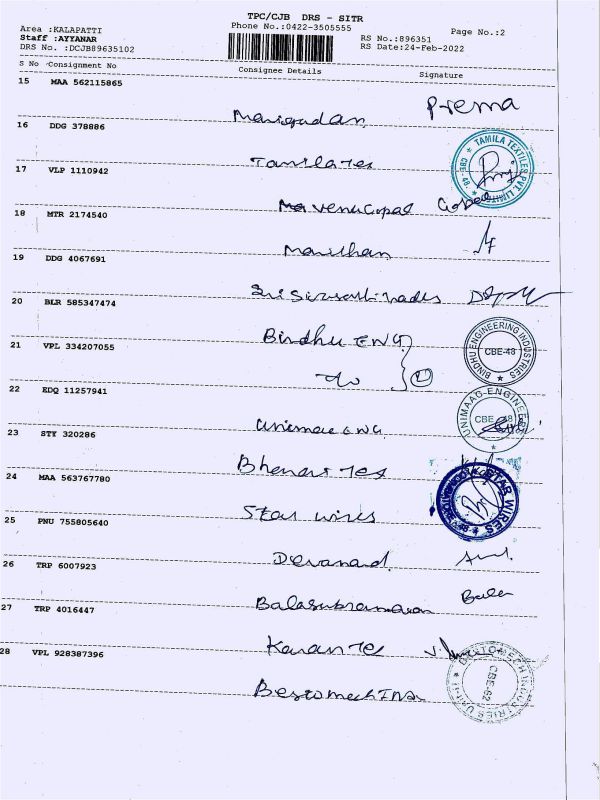 TPC/CJB DRS - SITR
Area :KALAPATTI Phone No.:0422-3505555 Page No.:2
Staff :AYYANAR RS No.:896351
DRS No. :DCJB89635102 RS Date:24-Feb-2022
S No Consignment No Consignee Details Signature
15 MAA 562115865 Prema
16 DDG 378886
TAMILA TEXTILES PVT. LIMITED
17 VLP 1110942
VenuGopal Gopal
18 MTR 2174540
19 DDG 4067691
20 BLR 585347474
Bindhu ENG
21 VPL 334207055
BINDHU ENGINEERING INDUSTRIES
CBE-48
do
22 EDQ 11257941
UNIMAAO-ENGINEERS
CBE - 48
Unimac ENG
23 STY 320286
Tex
24 MAA 563767780
STAR WIRES
Star wires
25 PNU 755805640
Devanand
26 TRP 6007923
Bala
Balasubramanian
27 TRP 4016447
Karan Tex
28 VPL 928387396
CBE-62